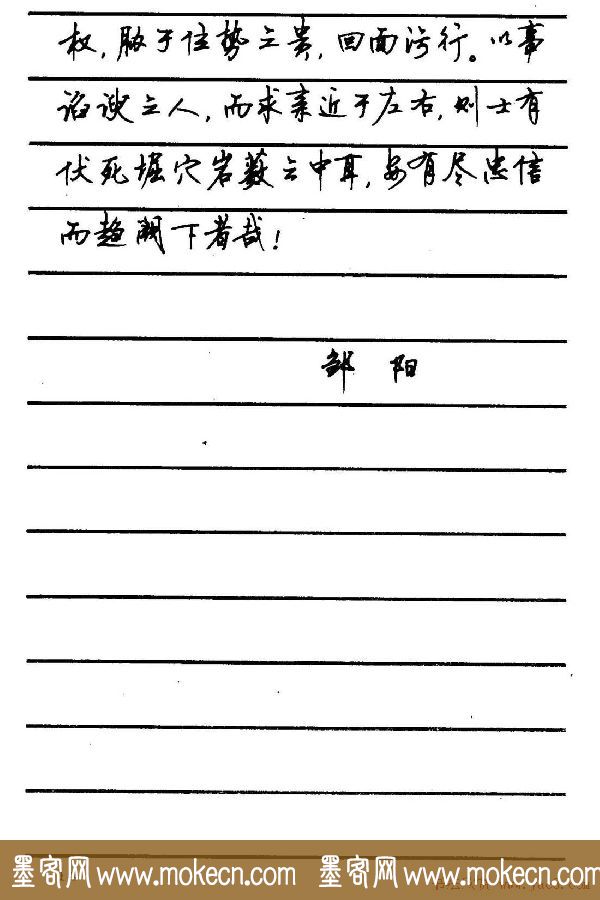 权，胁于位势之贵，回面污行。以事
谄谀之人，而求亲近于左右，则士有
伏死堀穴岩薮之中耳，安有尽忠信
而趋阙下者哉！
邹 阳
墨客网 www.mokecn.com 墨客网 www.mokecn.com